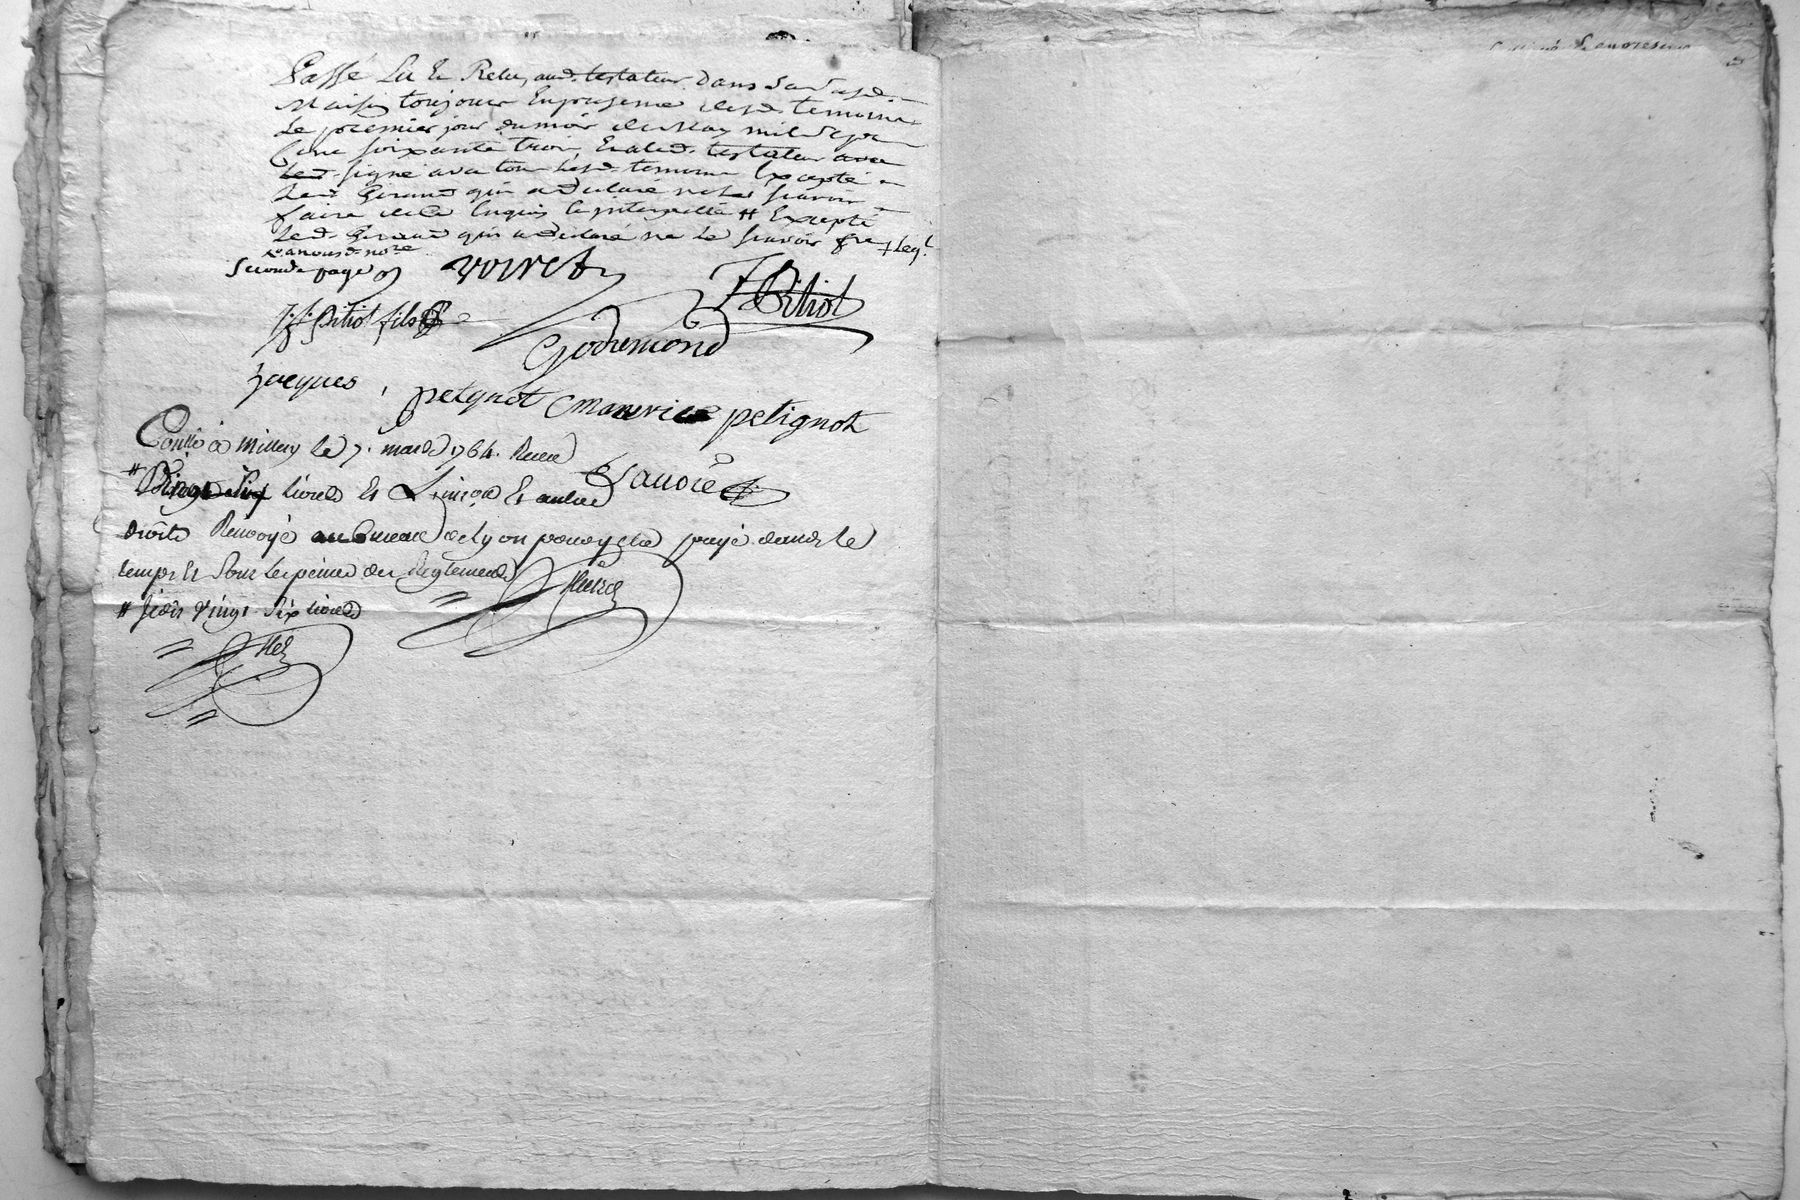 Passé Lu et Relu, aud. testateur Dans Sa Susd.
Maison toujours En presence desd. temoins
Le premier jour du mois de May mil Sept
Cent soixante trois Et a led. testateur
Led. signé avec tous lesd. temoins Excepté
Led. Giraud qui a declaré ne le sçavoir
faire de ce Enquis et interpellé # Excepté
Led. Giraud qui a declaré ne le sçavoir fre + Leq.l
seconde page voiret
F Pitiot
J.f. Pitiot fils
Godemond
Jacques petignot maurice petignot
Conllé à Millery le 7. mars 1764. Receu
Lavoié
# livres et L'inson et autres
droits Renvoyé au bureau de Lyon pour y etre payé dans le
temps et Sous les peines des Reglements
# Vingt Six livres